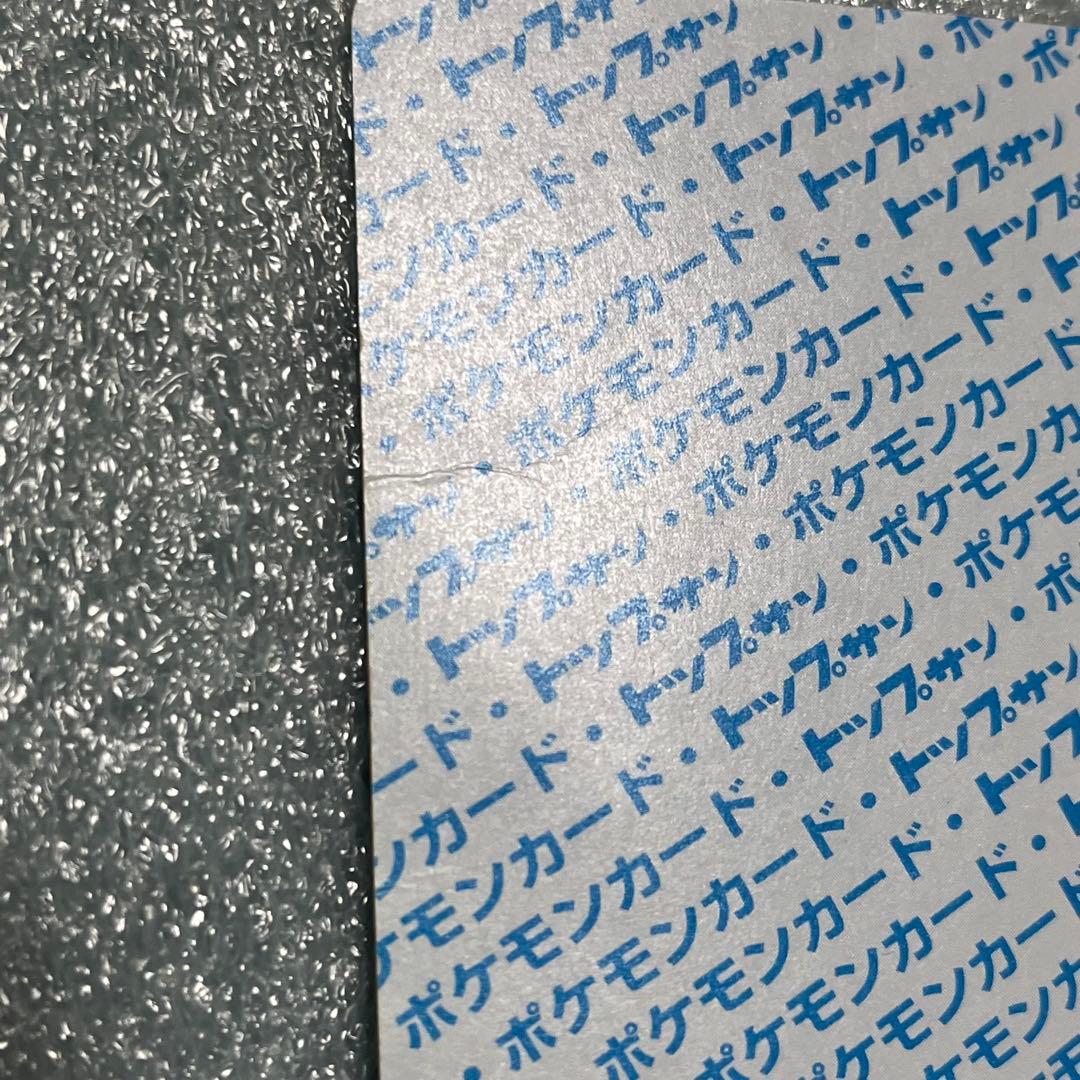 トッ
ド・トップ
カード・トップサン
ンカード・トップサン・
ケモンカード・トップサン・ポ
・ポケモンカード・トップサン・ポ
プサン・ポケモンカード・トップサン・
ップサン・ポケモンカード・トップ
・トップサン・ポケモンカード・ト
ード・トップサン・ポケモンカード
ンカード・トップサン・ポケモンカ
ケモンカード・トップサン・ポケモ
ポケモンカード・トップサン・ポ
・ポケモンカード・トップサン
ポケモンカード・トップ
ポケモンカード・ト
ケモンカード
ケモン